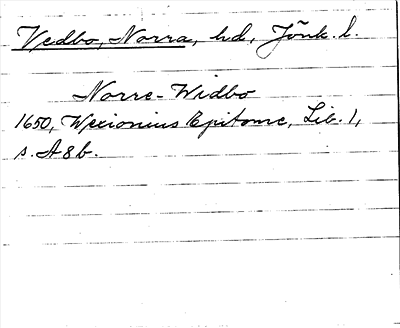 Vedbo, Norra, hd, Jönk. l.
Norre-Widbo
1650, Wexionius Epitome, Lib. 1,
s. A8b.